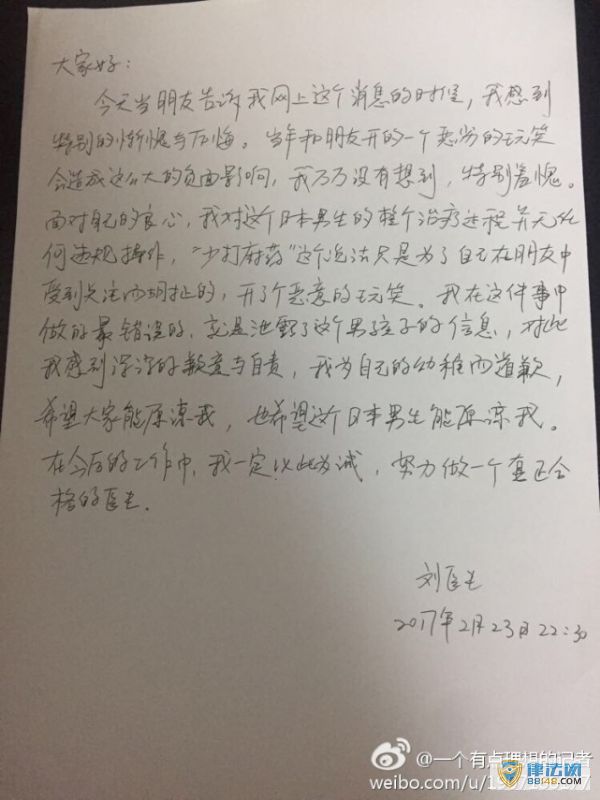 大家好：
今天当朋友告诉我网上这个消息的时候，我感到
特别的惭愧与后悔。当年和朋友开的一个恶劣的玩笑
会造成这么大的负面影响，我万万没有想到，特别羞愧。
面对自己的良心，我对这个日本男生的整个治疗过程并无任
何违规操作，“少打麻药”这个说法只是为了自己在朋友中
受到关注而胡扯的，开了个恶意的玩笑。我在这件事中
做的最错误的，就是泄露了这个男孩子的信息，对此
我感到深深的歉意与自责，我为自己的幼稚而道歉，
希望大家能原谅我，也希望这个日本男生能原谅我。
在今后的工作中，我一定以此为诫，努力做一个真正合
格的医生。
刘医生
2017年2月23日22:30
@一个有点理想的记者
weibo.com/u/1
律法网
88148.COM